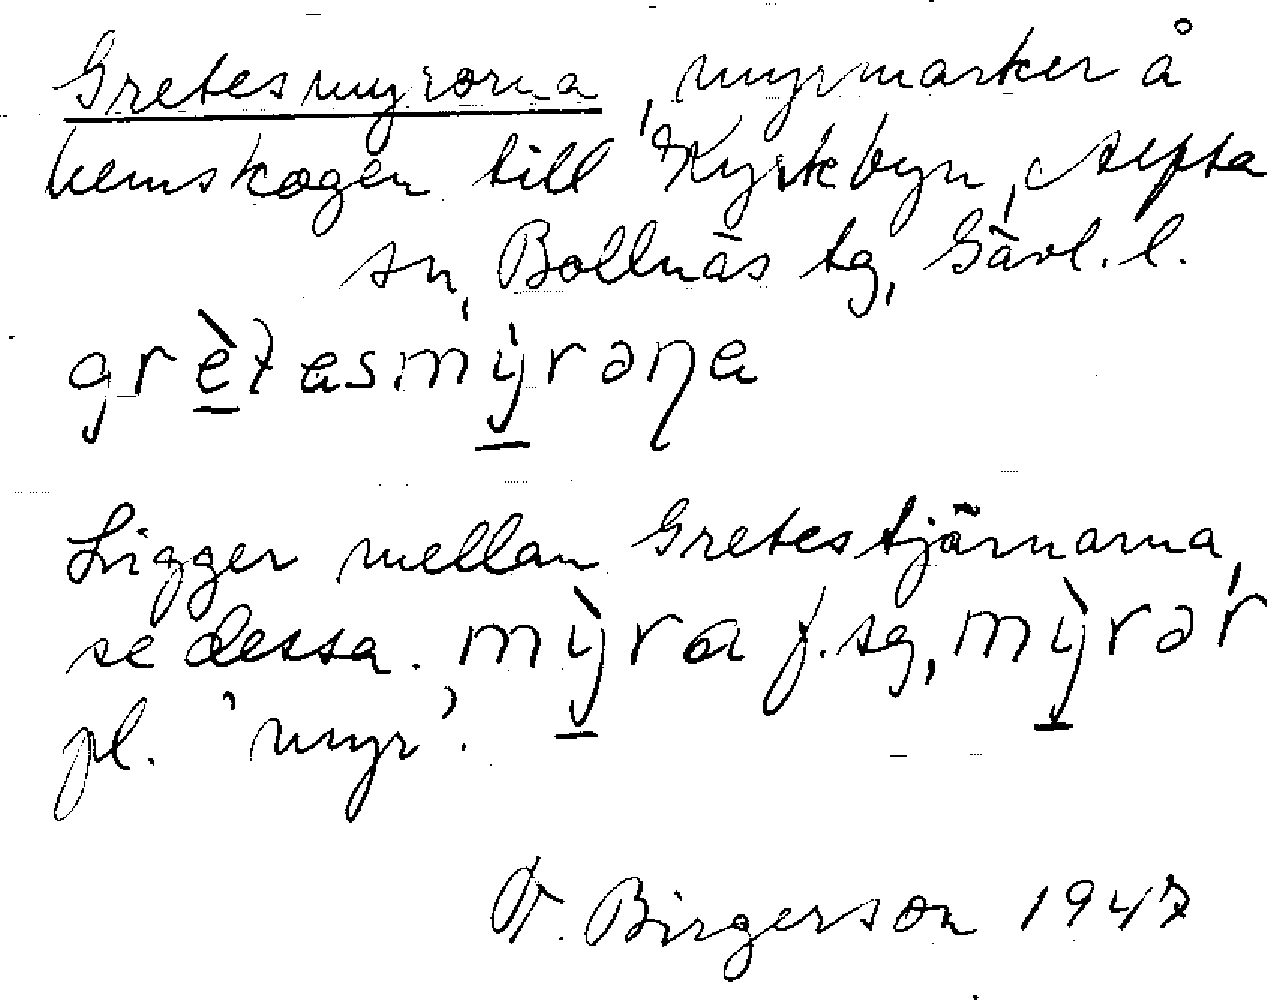 Gretesmyrorna, myrmarker å
hemskogen till Kyrkbyn, Alfta
sn, Bollnäs tg, Gävl. l.
grètasmỳrəṇa
Ligger mellan Gretestjärnarna,
se dessa. mỳra f. sg, mỳrər
pl. 'myr'.
V. Birgerson 1947